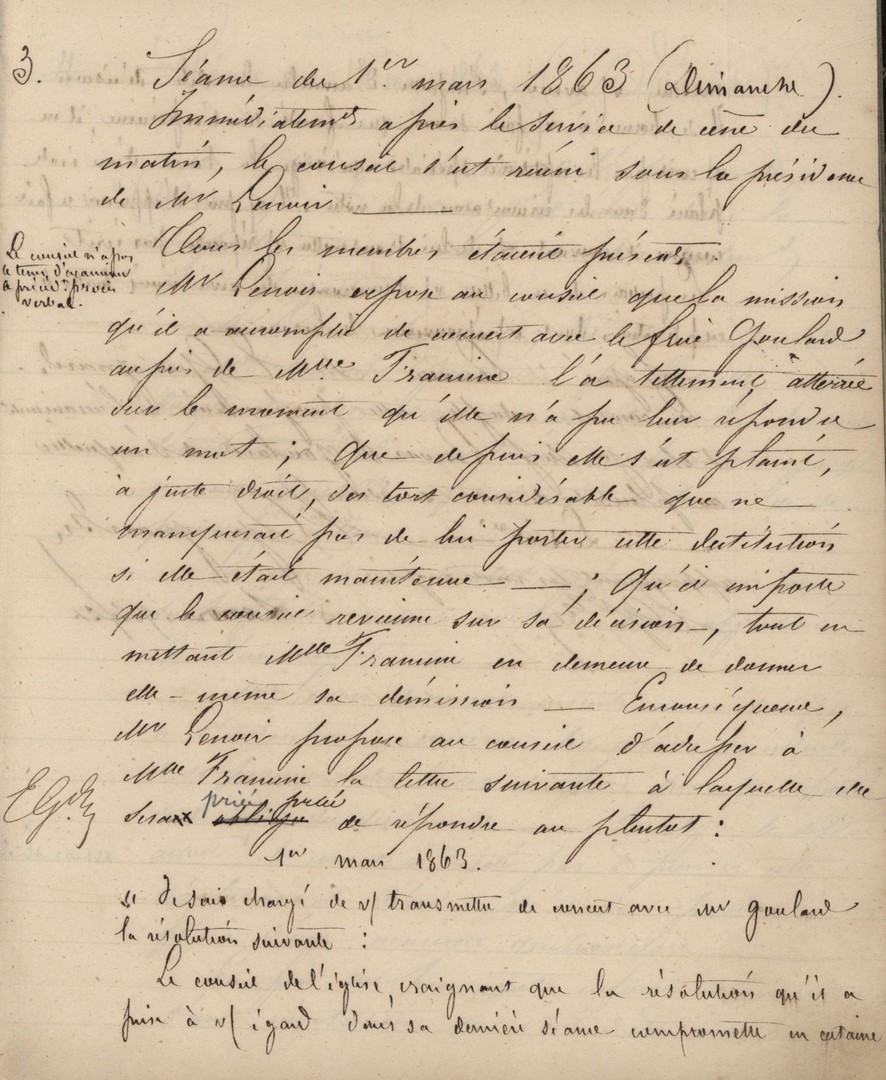 3.
Séance du 1er mars 1863 (Dimanche).
Immédiatemt après le service de cène du
matin, le conseil s'est réuni sous la présidence
de Mr Lenoir
Tous les membres étaient présents.
Le conseil n'a pas
le temps d'examiner
le précédt procès
verbal.
Mr Lenoir expose au conseil que la mission
qu'il a accomplie de concert avec le frère Goulard
auprès de Mlle Framine l'a tellement atterrée
sur le moment qu'elle n'a pu leur répondre
un mot ; que depuis elle s'est plainte,
à juste droit, des tort considérable que ne
manquerait pas de lui porter cette destitution
si elle était maintenue — ; Qu'il importe
que le conseil revienne sur sa décision —, tout en
mettant Mlle Framine en demeure de donner
elle-même sa démission — En conséquence,
Mr Lenoir propose au conseil d'adresser à
Mlle Framine la lettre suivante à laquelle elle
sera priée priée obligée de répondre au plutot :
1er mars 1863.
" Je suis chargé de v/ transmettre de concert avec Mr Goulard
la résolution suivante :
Le conseil de l'église, craignant que la résolution qu'il a
prise à v/ égard dans sa dernière séance compromette en certaine